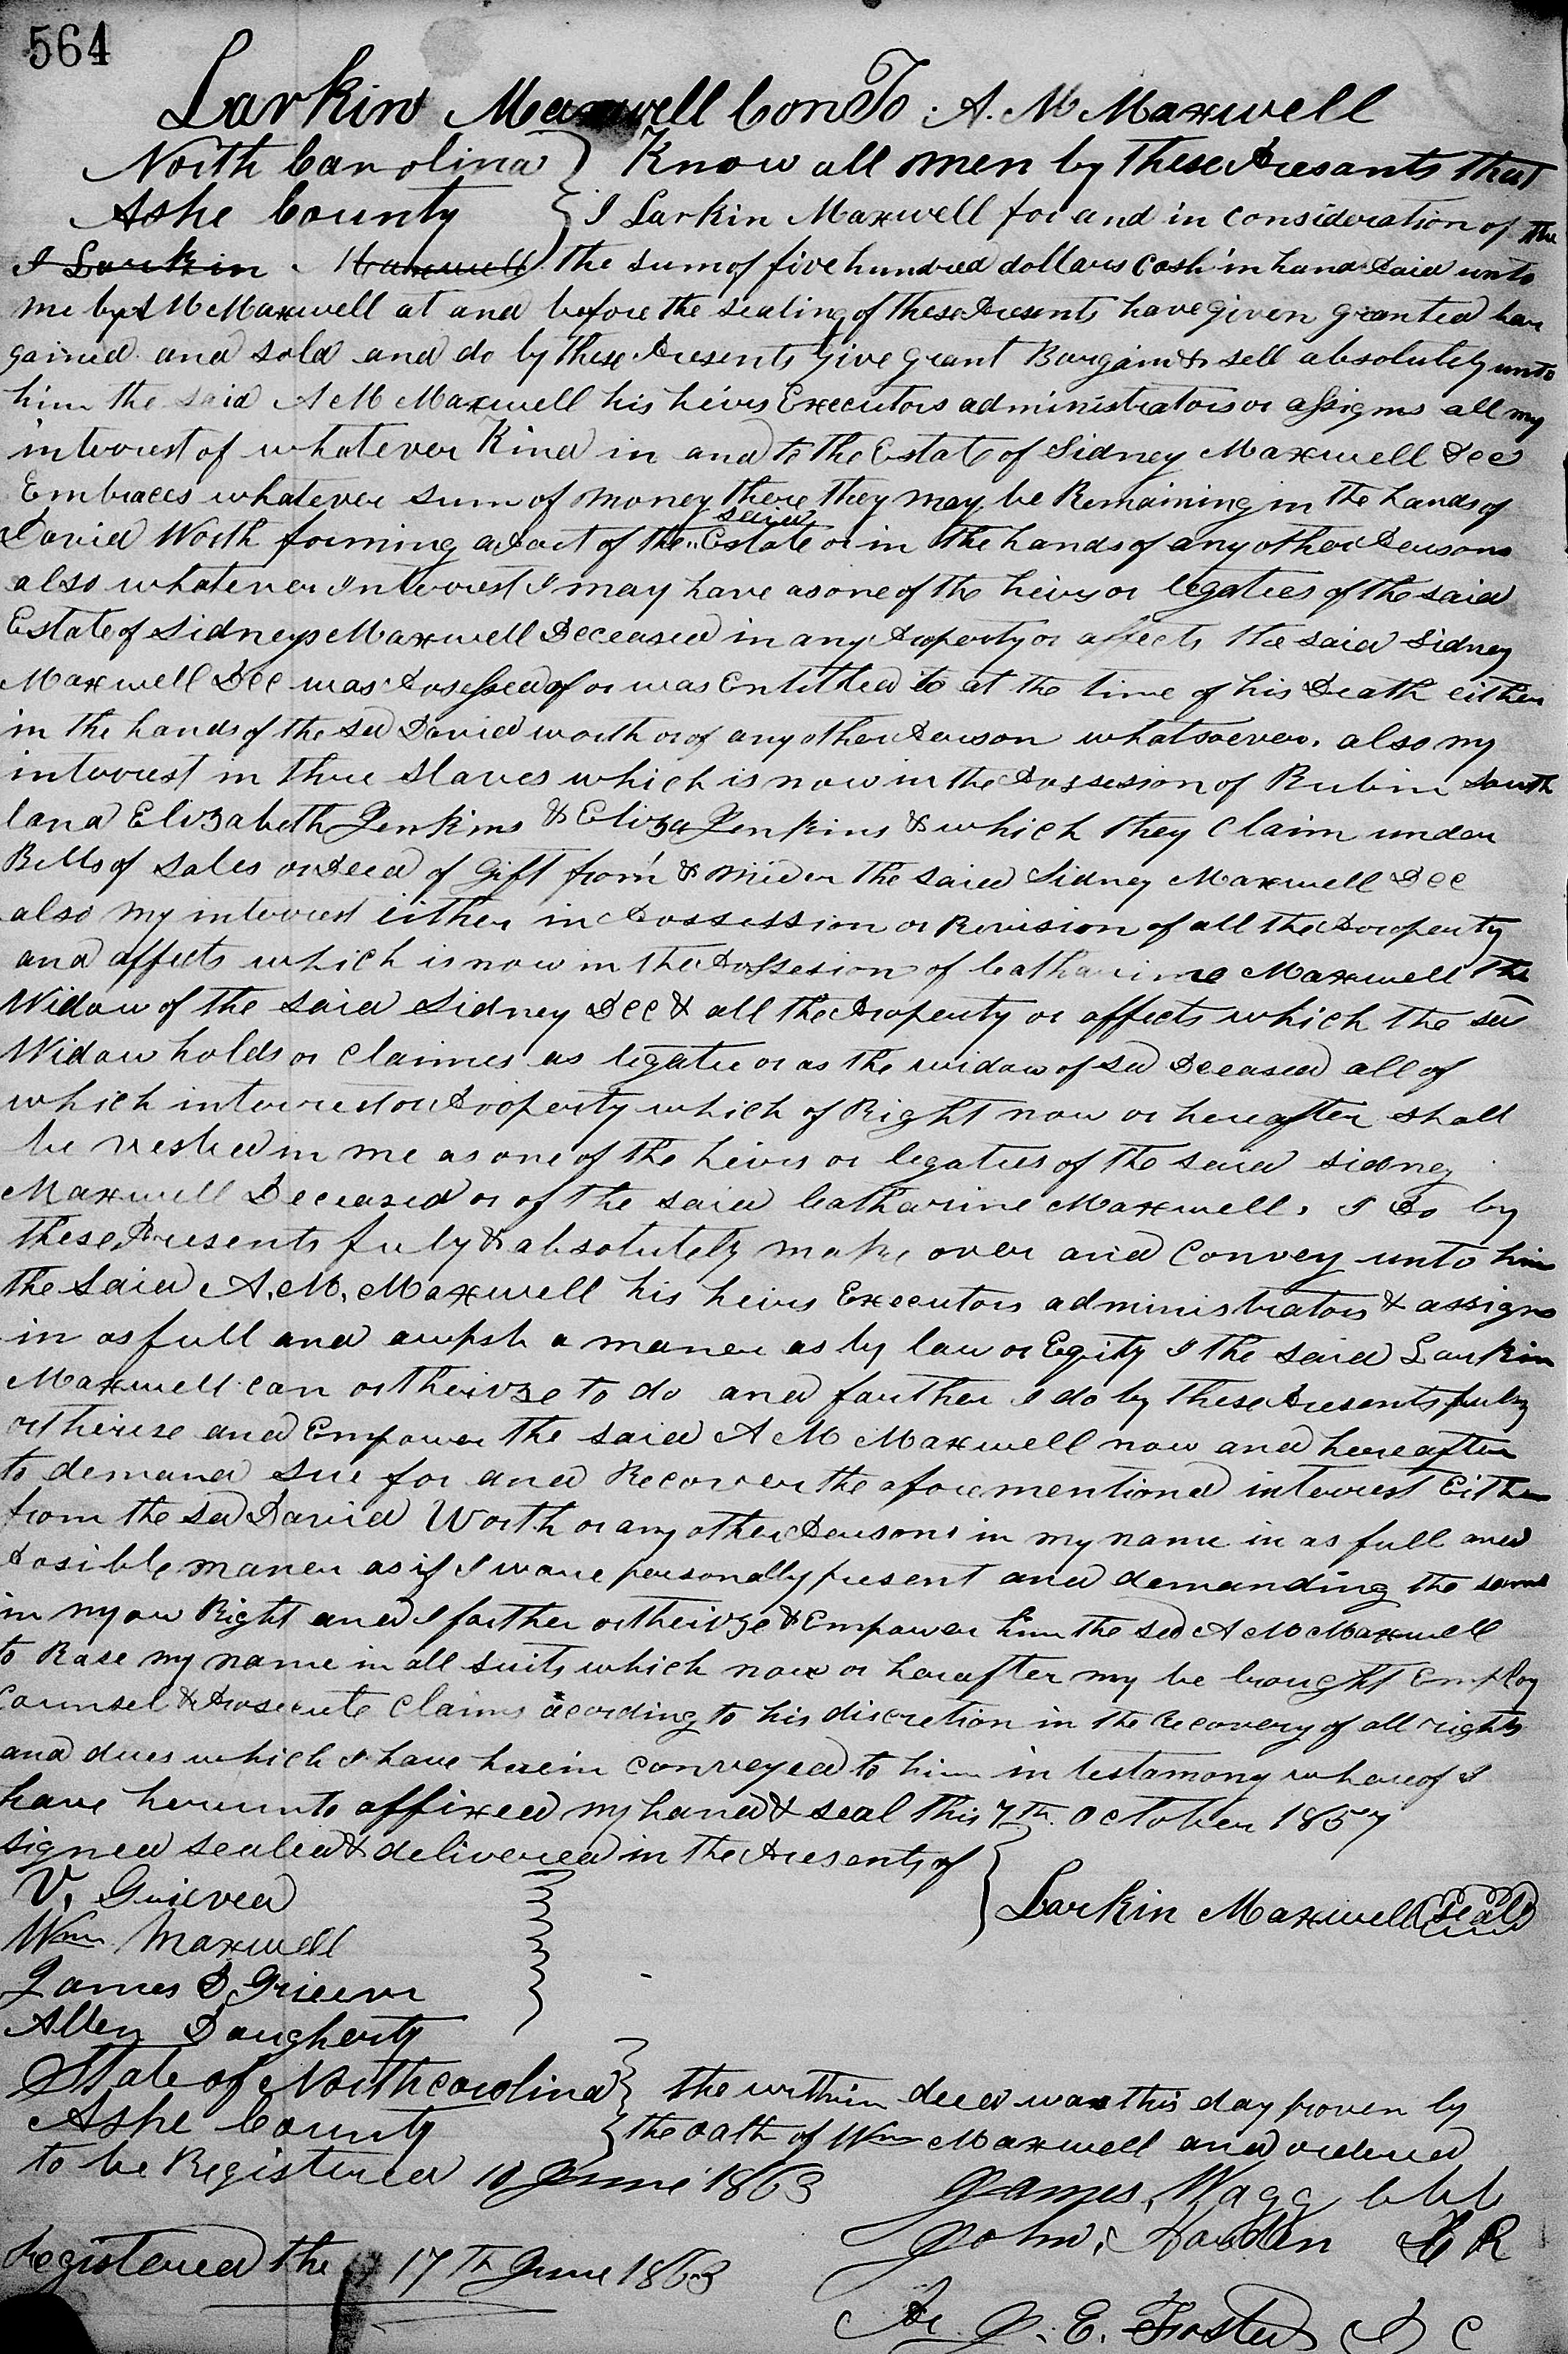 564
Larkin Maxwell Con To A. M Maxwell
North Carolina } Know all men by these Presants that
Ashe County } I Larkin Maxwell for and in consideration of the
I Larkin Maxwell the sum of five hundred dollars Cash in hand Paid unto
me by A M Maxwell at and before the sealing of these Presents have given granted bar
gained and sold and do by these Presents Give Grant Bargain & sell absolutely unto
him the said A M Maxwell his heirs Executors administrators or assigns all my
interest of whatever Kind in and to the Estate of Sidney Maxwell Dec
Embraces whatever sum of money there they may be Remaining in the hands of
David Worth forming a Part of the said Estate or in the hands of any other Persons
also whatever Interest I may have as one of the heirs or legatees of the said
Estate of Sidneys Maxwell Deceased in any Property or affects the said Sidney
Maxwell Dec was Posessed of or was Entitled to at the time of his Death either
in the hands of the sd David worth or of any other Person whatsoever. also my
interest in three Slaves which is now in the Possesion of Rubin South
land Elizabeth Jenkins & Eliza Jenkins & which they claim under
Bills of Sales or Deed of Gift from & under the said Sidney Maxwell Dec
also my interest either in Possession or Revision of all the Property
and affects which is now in the Possesion of Catharine Maxwell the
Widow of the said Sidney Dec & all the Property or affects which the sd
Widow holds or claimes as legatee or as the widow of sd Deceased all of
which interest or Property which of Right now or hereafter shall
be vested in me as one of the heirs or legatees of the said sidney
Maxwell Deceased or of the said Catharine Maxwell. I Do by
these Presents fuly & absolutely make over and convey unto him
the said A. M. Maxwell his heirs Executors administrators & assigns
in as full and a maner as by law or Eqity I the said Larkin
Maxwell can ortherize to do and farther I do by these Presents fuly
ortherize and Empower the said A M Maxwell now and hereafter
to demand sue for and Recover the aforementioned interest Either
from the sd David Worth or any other Persons in my name in as full and
Posible maner as if I ware personally present and demanding the same
in my own Right and I farther ortherize & Empower him the sd A M Maxwell
to my name in all suits which now or hereafter my be brought Employ
Counsel & Prosecute Claims acording to his discretion in the recovery of all rights
and dues which I have herein conveyed to him in testamony whareof I
have hereunto affixed my hand & seal this 7th October 1857
signed sealed & delivered in the Presents of
Larkin Maxwell (Seal)
V.
Wm Maxwell
James D
Allen Daugherty
State of North carolina } the within deed was this day proven by
Ashe County } the oath of Wm Maxwell and ordered
to be Registered 10 June 1863
James Wagg
John Harden
Registered the 17th June 1863
J. E. Foster D C